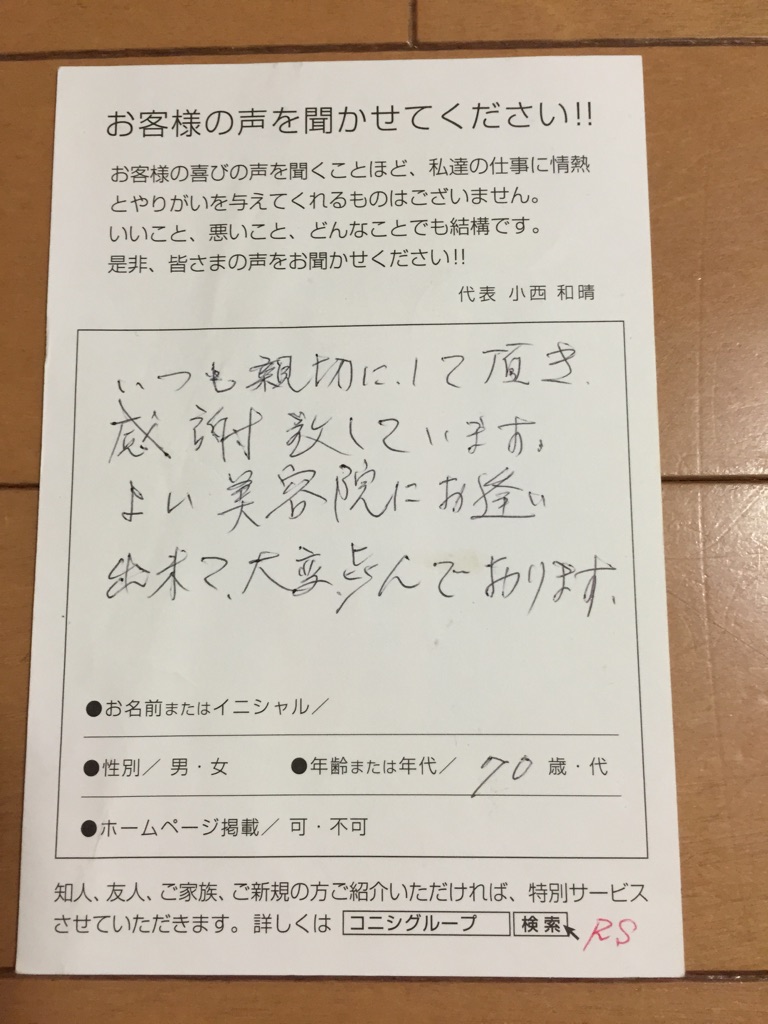 お客様の声を聞かせてください!!
お客様の喜びの声を聞くことほど、私達の仕事に情熱
とやりがいを与えてくれるものはございません。
いいこと、悪いこと、どんなことでも結構です。
是非、皆さまの声をお聞かせください!!
代表 小西 和晴
いつも親切にして頂き、
感謝致しています。
よい美容院にお逢い
出来て、大変 んでおります。
●お名前またはイニシャル／
●性別／ 男・女 ●年齢または年代／ 70 歳・代
●ホームページ掲載／ 可・不可
知人、友人、ご家族、ご新規の方ご紹介いただければ、特別サービス
させていただきます。詳しくは コニシグループ 検索 RS